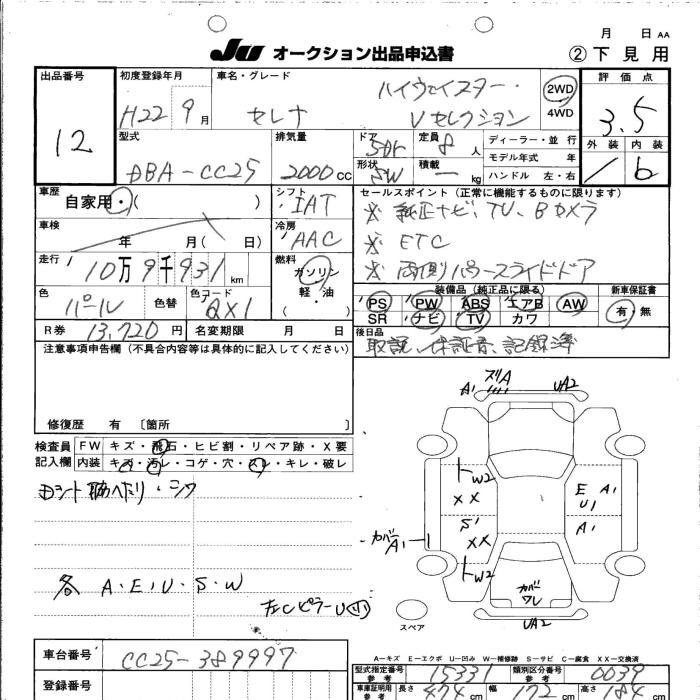 月 日 AA
JU オークション出品申込書 ②下見用
出品番号 初度登録年月 車名・グレード 評価点
12 H22 9月 セレナ ハイウェイスター・ Vセレクション 2WD 4WD 3.5
型式 排気量 ドア 定員 ディーラー・並行 外装 内装
DBA-CC25 2000cc 5Dr 8人 モデル年式 年 / b
形状 積載 ハンドル 左・右
SW ー
車歴 自家用・( ) シフト IAT セールスポイント (正常に機能するものに限ります)
※ 純正ナビ、TV、Bカメラ
車検 年 月( 日) 冷房 AAC ※ ETC
走行 10万9千931km 燃料 ガソリン 軽・油 ( ※ 両側パワースライドドア
装備品 (純正品に限る) 新車保証書
色 パール 色替 色コード QX1 PS PW ABS エアB AW 有・無
SR ナビ TV カワ
R券 13,720円 名変期限 月 日 後日品
取説、保証書、記録簿
注意事項申告欄 (不具合内容等は具体的に記入してください)
修復歴 有 〔箇所 〕
検査員 FW キズ・飛石・ヒビ割・リペア跡・X要
記入欄 内装 キズ・汚レ・コゲ・穴・スレ・キレ・破レ
シワ
各 A・E・U・S・W
左Cピラー U小
A1 ズリA UA2
W2
XX
E A1
U1
S1
XX
A1
カバー A1
W2
カバー ワレ
UA2
スペア
A-キズ E-エクボ U-凹み W-補修跡 S-サビ C-腐食 XX-交換済
車台番号 CC25-389997 型式指定番号 参考 15331 類別区分番号 参考 0039
登録番号 車庫証明用 参考 長さ 474cm 幅 172cm 高さ 184cm